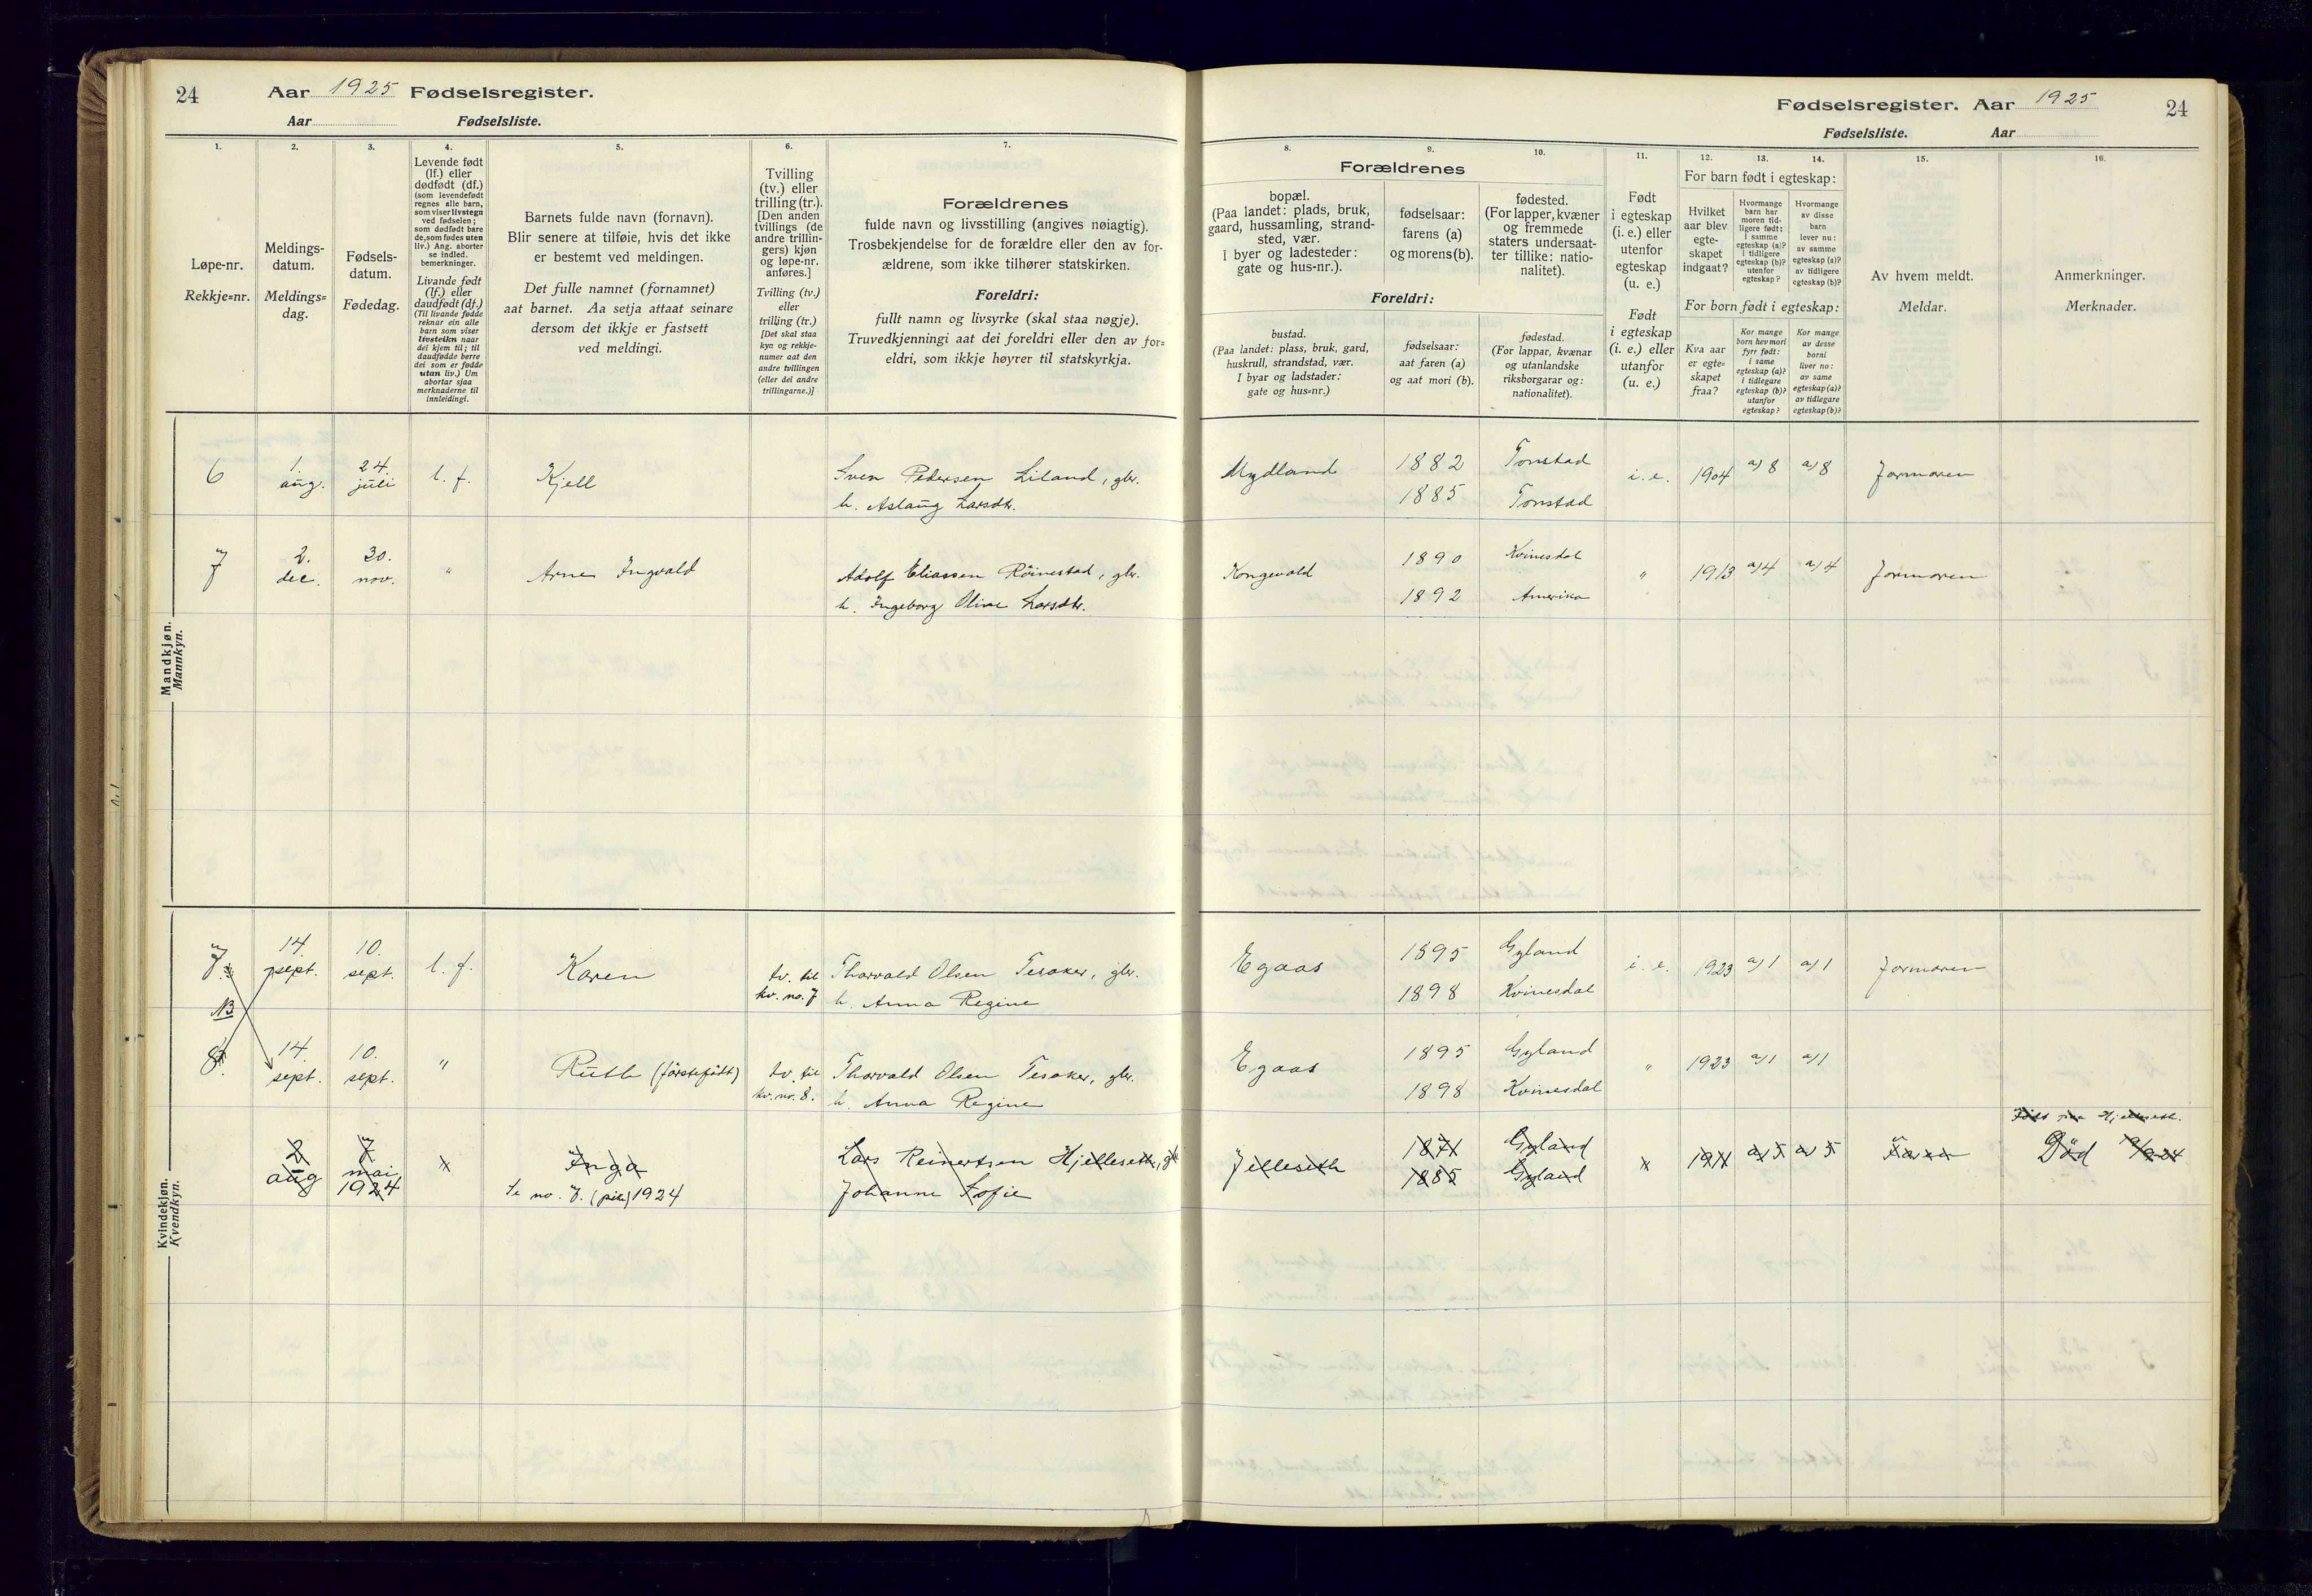 24 Aar 1925 Fødselsregister.
Aar Fødselsliste.
Fødselsregister. Aar 1925 24
Fødselsliste. Aar
1.
Løpe-nr.
Rekkje=nr.
2.
Meldings-
datum.
Meldings=
dag.
3.
Fødsels-
datum.
Fødedag.
4.
Levende født
(lf.) eller
dødfødt (df.)
(som levendefødt
regnes alle barn,
som viser livstegn
ved fødselen;
som dødfødt bare
de, som fødes uten
liv.) Ang. aborter
se indled.
bemerkninger.
Livande født
(lf.) eller
daudfødt (df.)
(Til livande fødde
reknar ein alle
barn som viser
livsteikn naar
dei kjem til; til
daudfødde berre
dei som er fødde
utan liv.) Um
abortar sjaa
merknaderne til
innleidingi.
5.
Barnets fulde navn (fornavn).
Blir senere at tilføie, hvis det ikke
er bestemt ved meldingen.
Det fulle namnet (fornamnet)
aat barnet. Aa setja attaat seinare
dersom det ikkje er fastsett
ved meldingi.
6.
Tvilling
(tv.) eller
trilling (tr.).
[Den anden
tvillings (de
andre trillin-
gers) kjøn
og løpe-nr.
anføres.]
Tvilling (tv.)
eller
trilling (tr.)
[Det skal staa
kyn og rekkje-
numer aat den
andre tvillingen
(eller dei andre
trillingarne.)]
7.
Forældrenes
fulde navn og livsstilling (angives nøiagtig).
Trosbekjendelse for de forældre eller den av for-
ældrene, som ikke tilhører statskirken.
Foreldri:
fullt namn og livsyrke (skal staa nøgje).
Truvedkjenningi aat dei foreldri eller den av for=
eldri, som ikkje høyrer til statskyrkja.
8. 9. 10.
Forældrenes
bopæl.
(Paa landet: plads, bruk,
gaard, hussamling, strand-
sted, vær.
I byer og ladesteder:
gate og hus-nr.).
fødselsaar:
farens (a)
og morens (b).
fødested.
(For lapper, kvæner
og fremmede
staters undersaat-
ter tillike: natio-
nalitet).
Foreldri:
bustad.
(Paa landet: plass, bruk, gard,
huskrull, strandstad, vær.
I byar og ladstader:
gate og hus=nr.)
fødselsaar:
aat faren (a)
og aat mori (b).
fødestad.
(For lappar, kvænar
og utanlandske
riksborgarar og:
nationalitet).
11.
Født
i egteskap
(i. e.) eller
utenfor
egteskap
(u. e.)
Født
i egteskap
(i. e.) eller
utanfor
(u. e.)
12. 13. 14.
For barn født i egteskap:
Hvilket
aar blev
egte-
skapet
indgaat?
Hvormange
barn har
moren tid-
ligere født:
i samme
egteskap (a)?
i tidligere
egteskap (b)?
utenfor
egteskap?
Hvormange
av disse
barn
lever nu:
av samme
egteskap (a)?
av tidligere
egteskap (b)?
For born født i egteskap:
Kva aar
er egte=
skapet
fraa?
Kor mange
born hev mori
fyrr født:
i same
egteskap (a)?
i tidlegare
egteskap (b)?
utanfor
egteskap?
Kor mange
av desse
borni
liver no:
av same
egteskap (a)?
av tidlegare
egteskap (b)?
15.
Av hvem meldt.
Meldar.
16.
Anmerkninger.
Merknader.
Mandkjøn.
Mannkyn.
6 1. aug. 24. juli l. f. Kjell Sven Pedersen Liland, gbr. Mydland 1882 Tonstad i. e. 1904 a) 8 a) 8 Jormoren
h. Aslaug Larsdtr. 1885 Tonstad
7 2. dec. 30. nov. " Arne Ingvald Adolf Eliassen Röinestad, gbr. Kongevold 1890 Kvinesdal " 1913 a) 4 a) 4 Jormoren
h. Ingeborg Oline Larsdtr. 1892 Amerika
Kvindekjøn.
Kvendkyn.
7. 14. sept. 10. sept. l. f. Karen tv. til Thorvald Olsen Tesaker, gbr. Egaas 1895 Gyland i. e. 1923 a) 1 a) 1 Jormoren
NB kv. no. 7 h. Anna Regine 1898 Kvinesdal
8. 14. sept. 10. sept. " Ruth (förstefödt) tv. til Thorvald Olsen Tesaker, gbr. Egaas 1895 Gyland " 1923 a) 1 a) 1
kv. no. 8. h. Anna Regine 1898 Kvinesdal
2 aug 7. mai 1924 Inga Lars Reinertsen Hjelleseth, Jelleseth 1871 Gyland a) 5 a) 5 Död
Se no. 7. 1924 Johanne Sofie 1885 Gyland